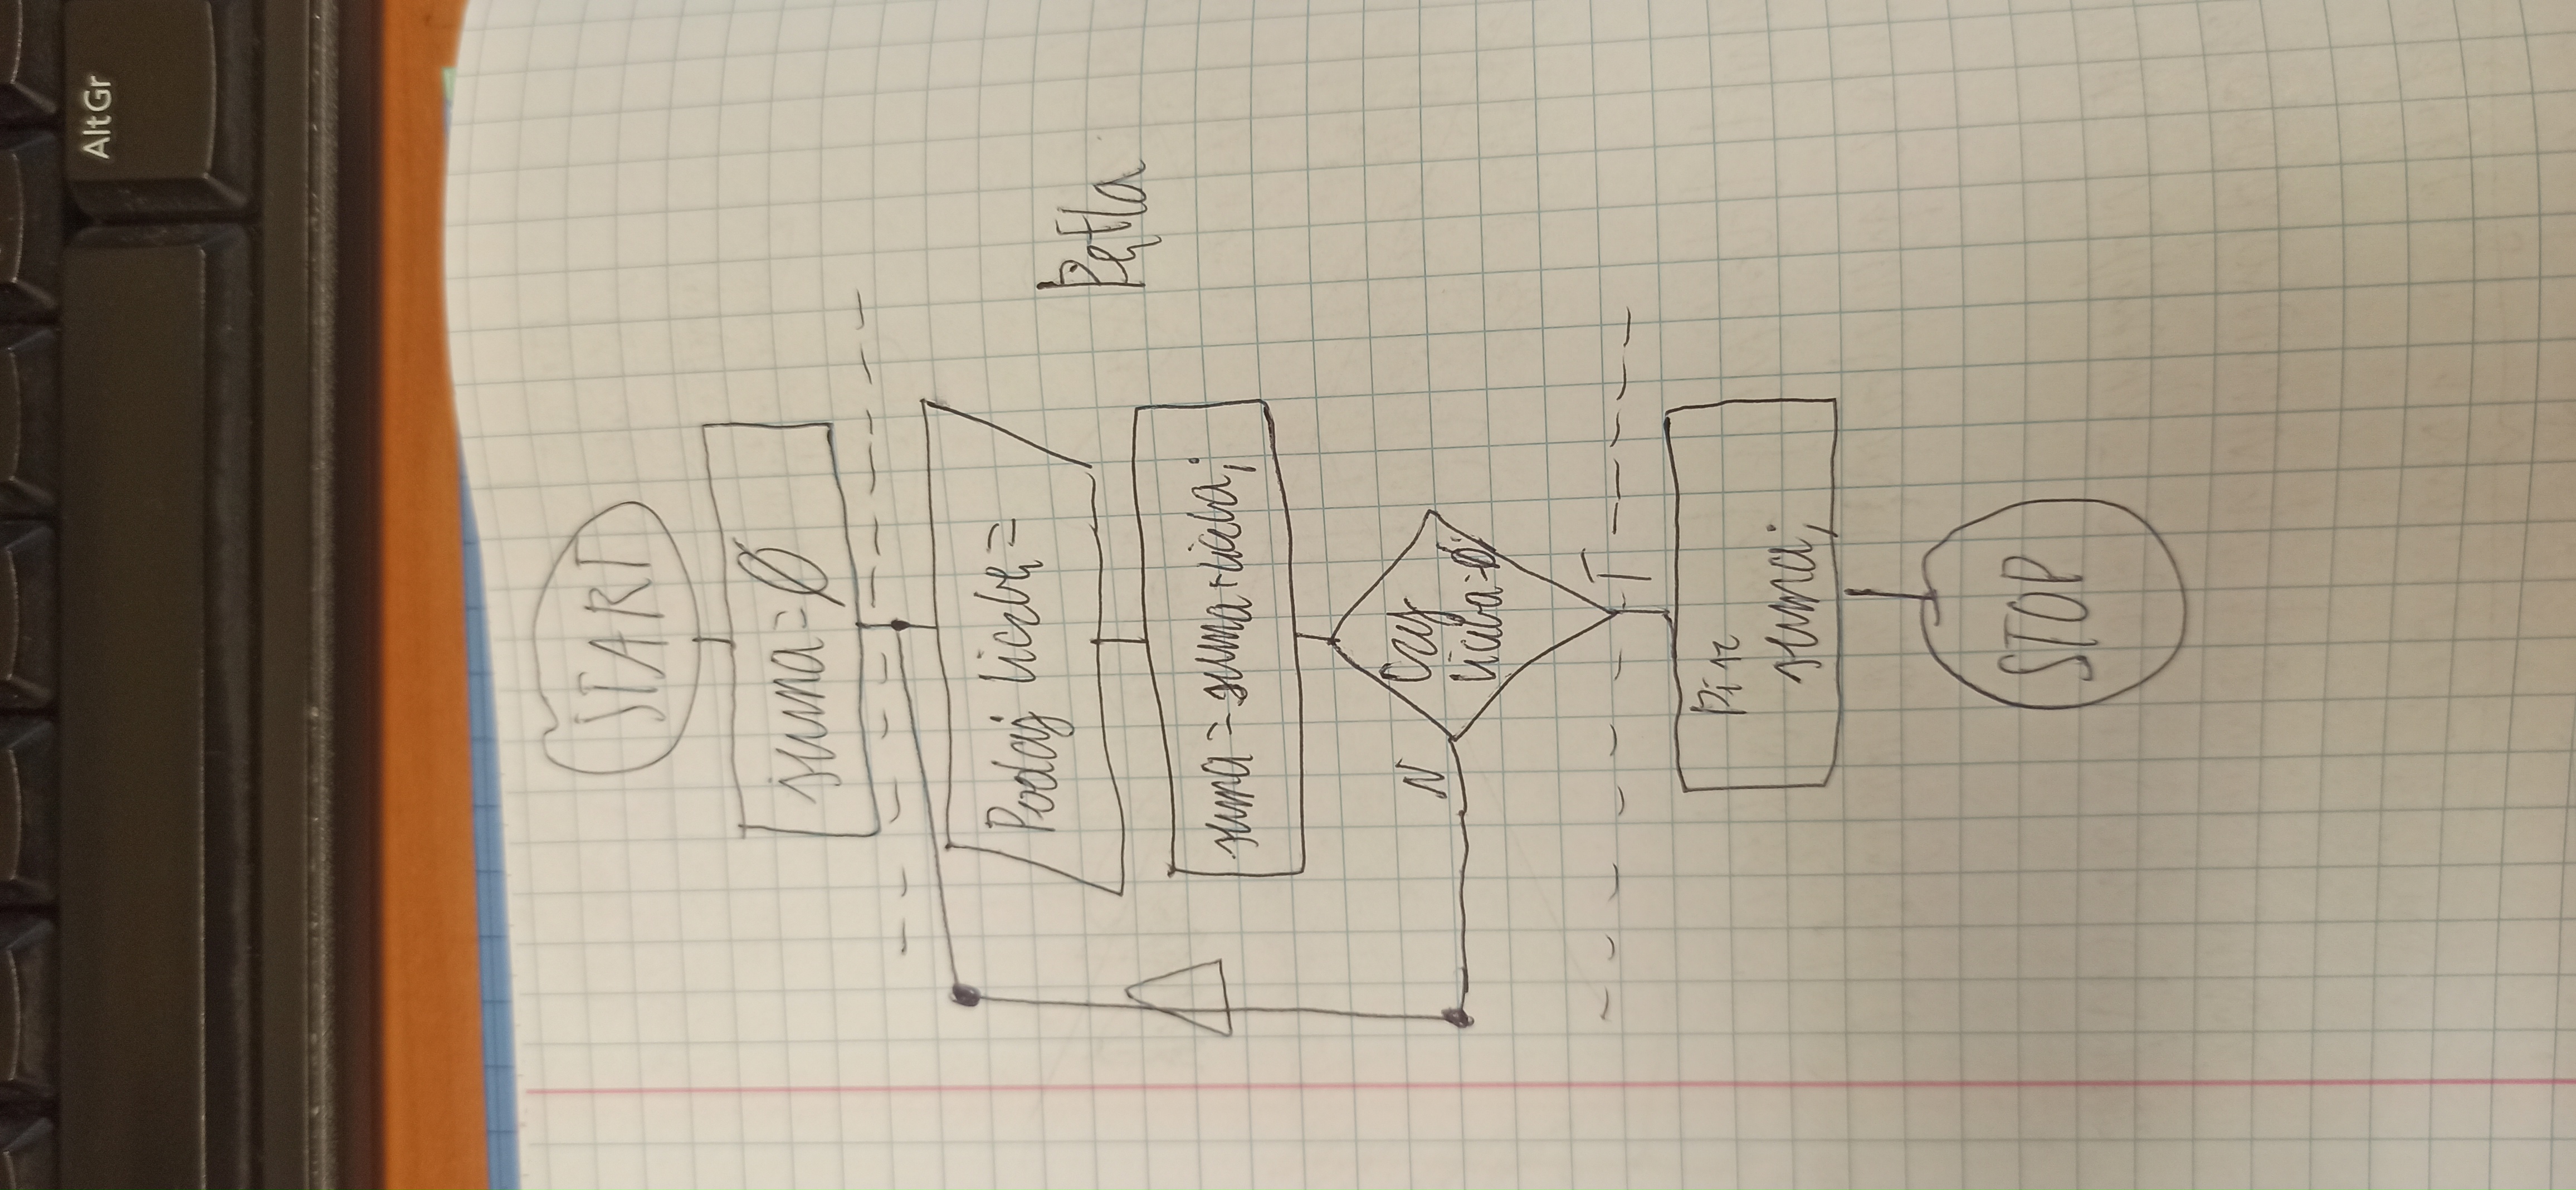 AltGr
START
suma=Ø
Podaj liczbę=
Pętla
suma=suma+liczba;
N
Czy
liczba=Ø
T
Pisz
suma;
STOP